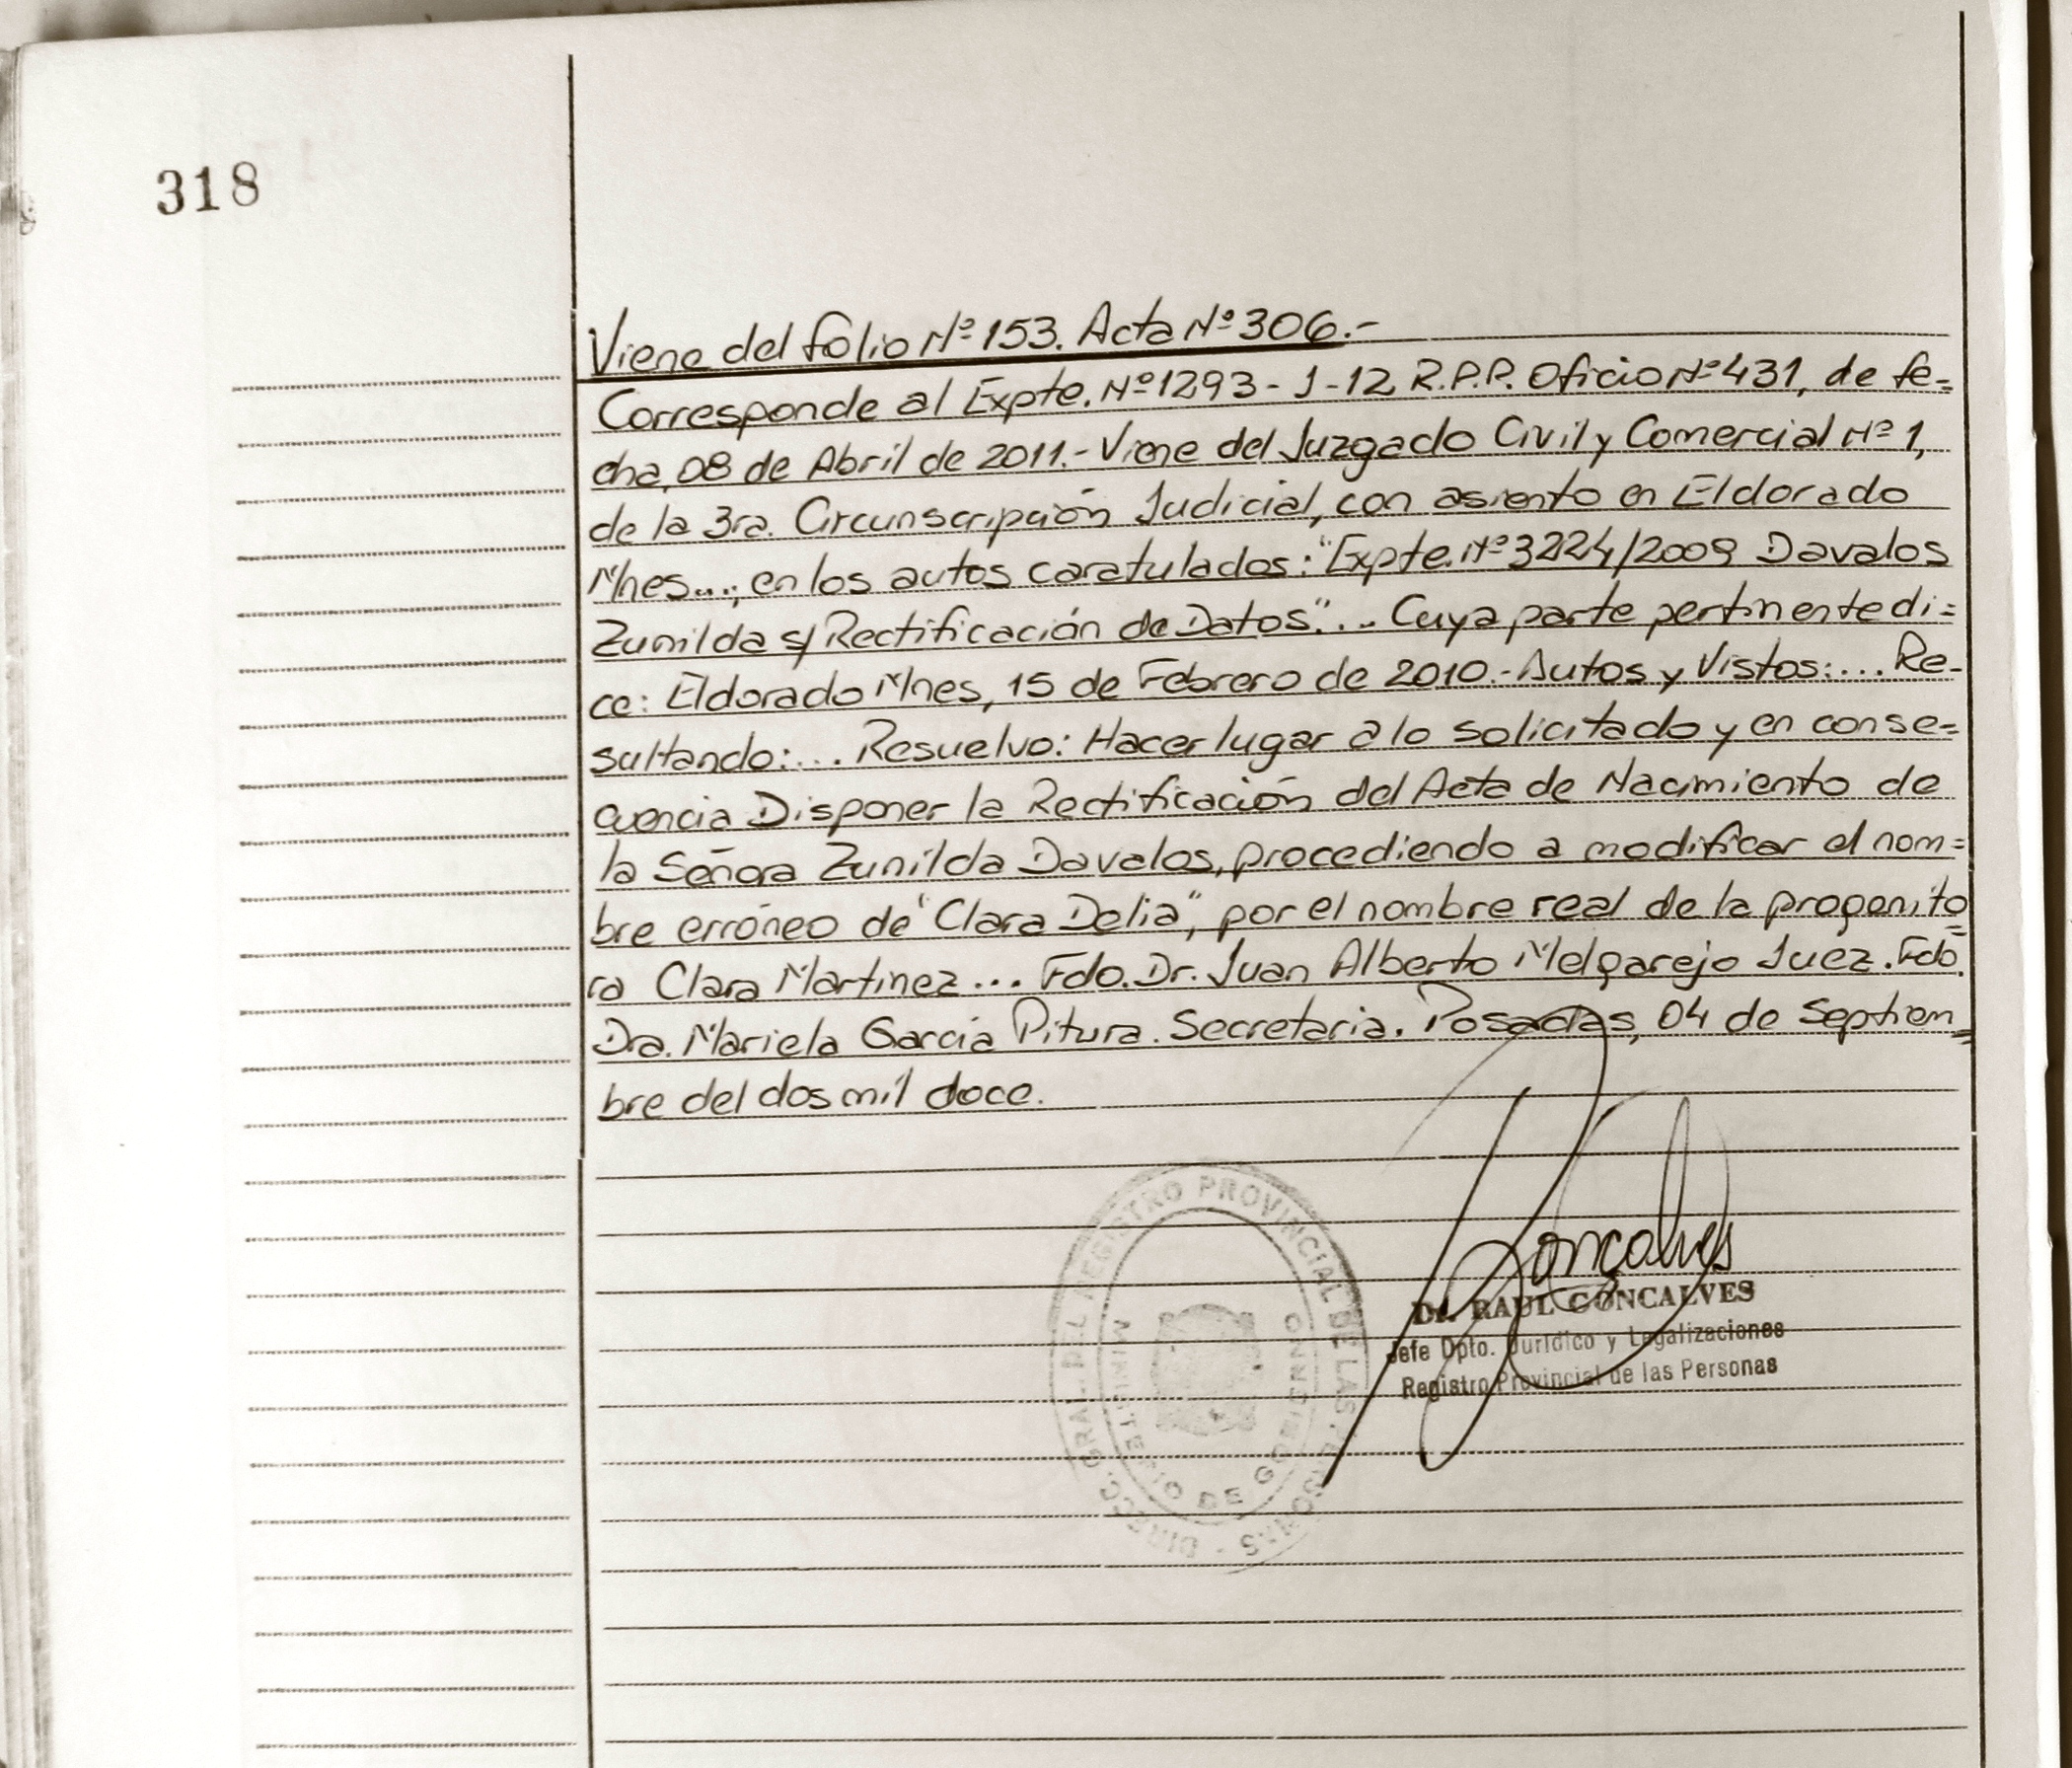 318
Viene del folio Nº 153. Acta Nº 306.-
Corresponde al Expte. Nº 1293-J-12 R.P.P. Oficio Nº 431, de fe=
cha, 08 de Abril de 2011.- Viene del Juzgado Civil y Comercial Nº 1,
de la 3ra. Circunscripción Judicial, con asiento en Eldorado
Mnes...; en los autos caratulados: "Expte. Nº 3224/2009 Davalos
Zunilda s/ Rectificación de Datos"... Cuya parte pertinente di=
ce: Eldorado Mnes, 15 de Febrero de 2010.- Autos y Vistos:... Re-
sultando:... Resuelvo: Hacer lugar a lo solicitado y en conse=
cuencia Disponer la Rectificación del Acta de Nacimiento de
la Señora Zunilda Davalos, procediendo a modificar el nom=
bre erróneo de "Clara Delia", por el nombre real de la progenito=
ra Clara Martinez... Fdo. Dr. Juan Alberto Melgarejo Juez. Fdo.
Dra. Mariela García Pitura. Secretaria. Posadas, 04 de Septiem=
bre del dos mil doce.
Gonçalves
Dr. RAUL GONCALVES
Jefe Dpto. Jurídico y Legalizaciones
Registro Provincial de las Personas
DIRECC. GRAL. DEL REGISTRO PROVINCIAL DE LAS PERSONAS -
MINISTERIO DE GOBIERNO